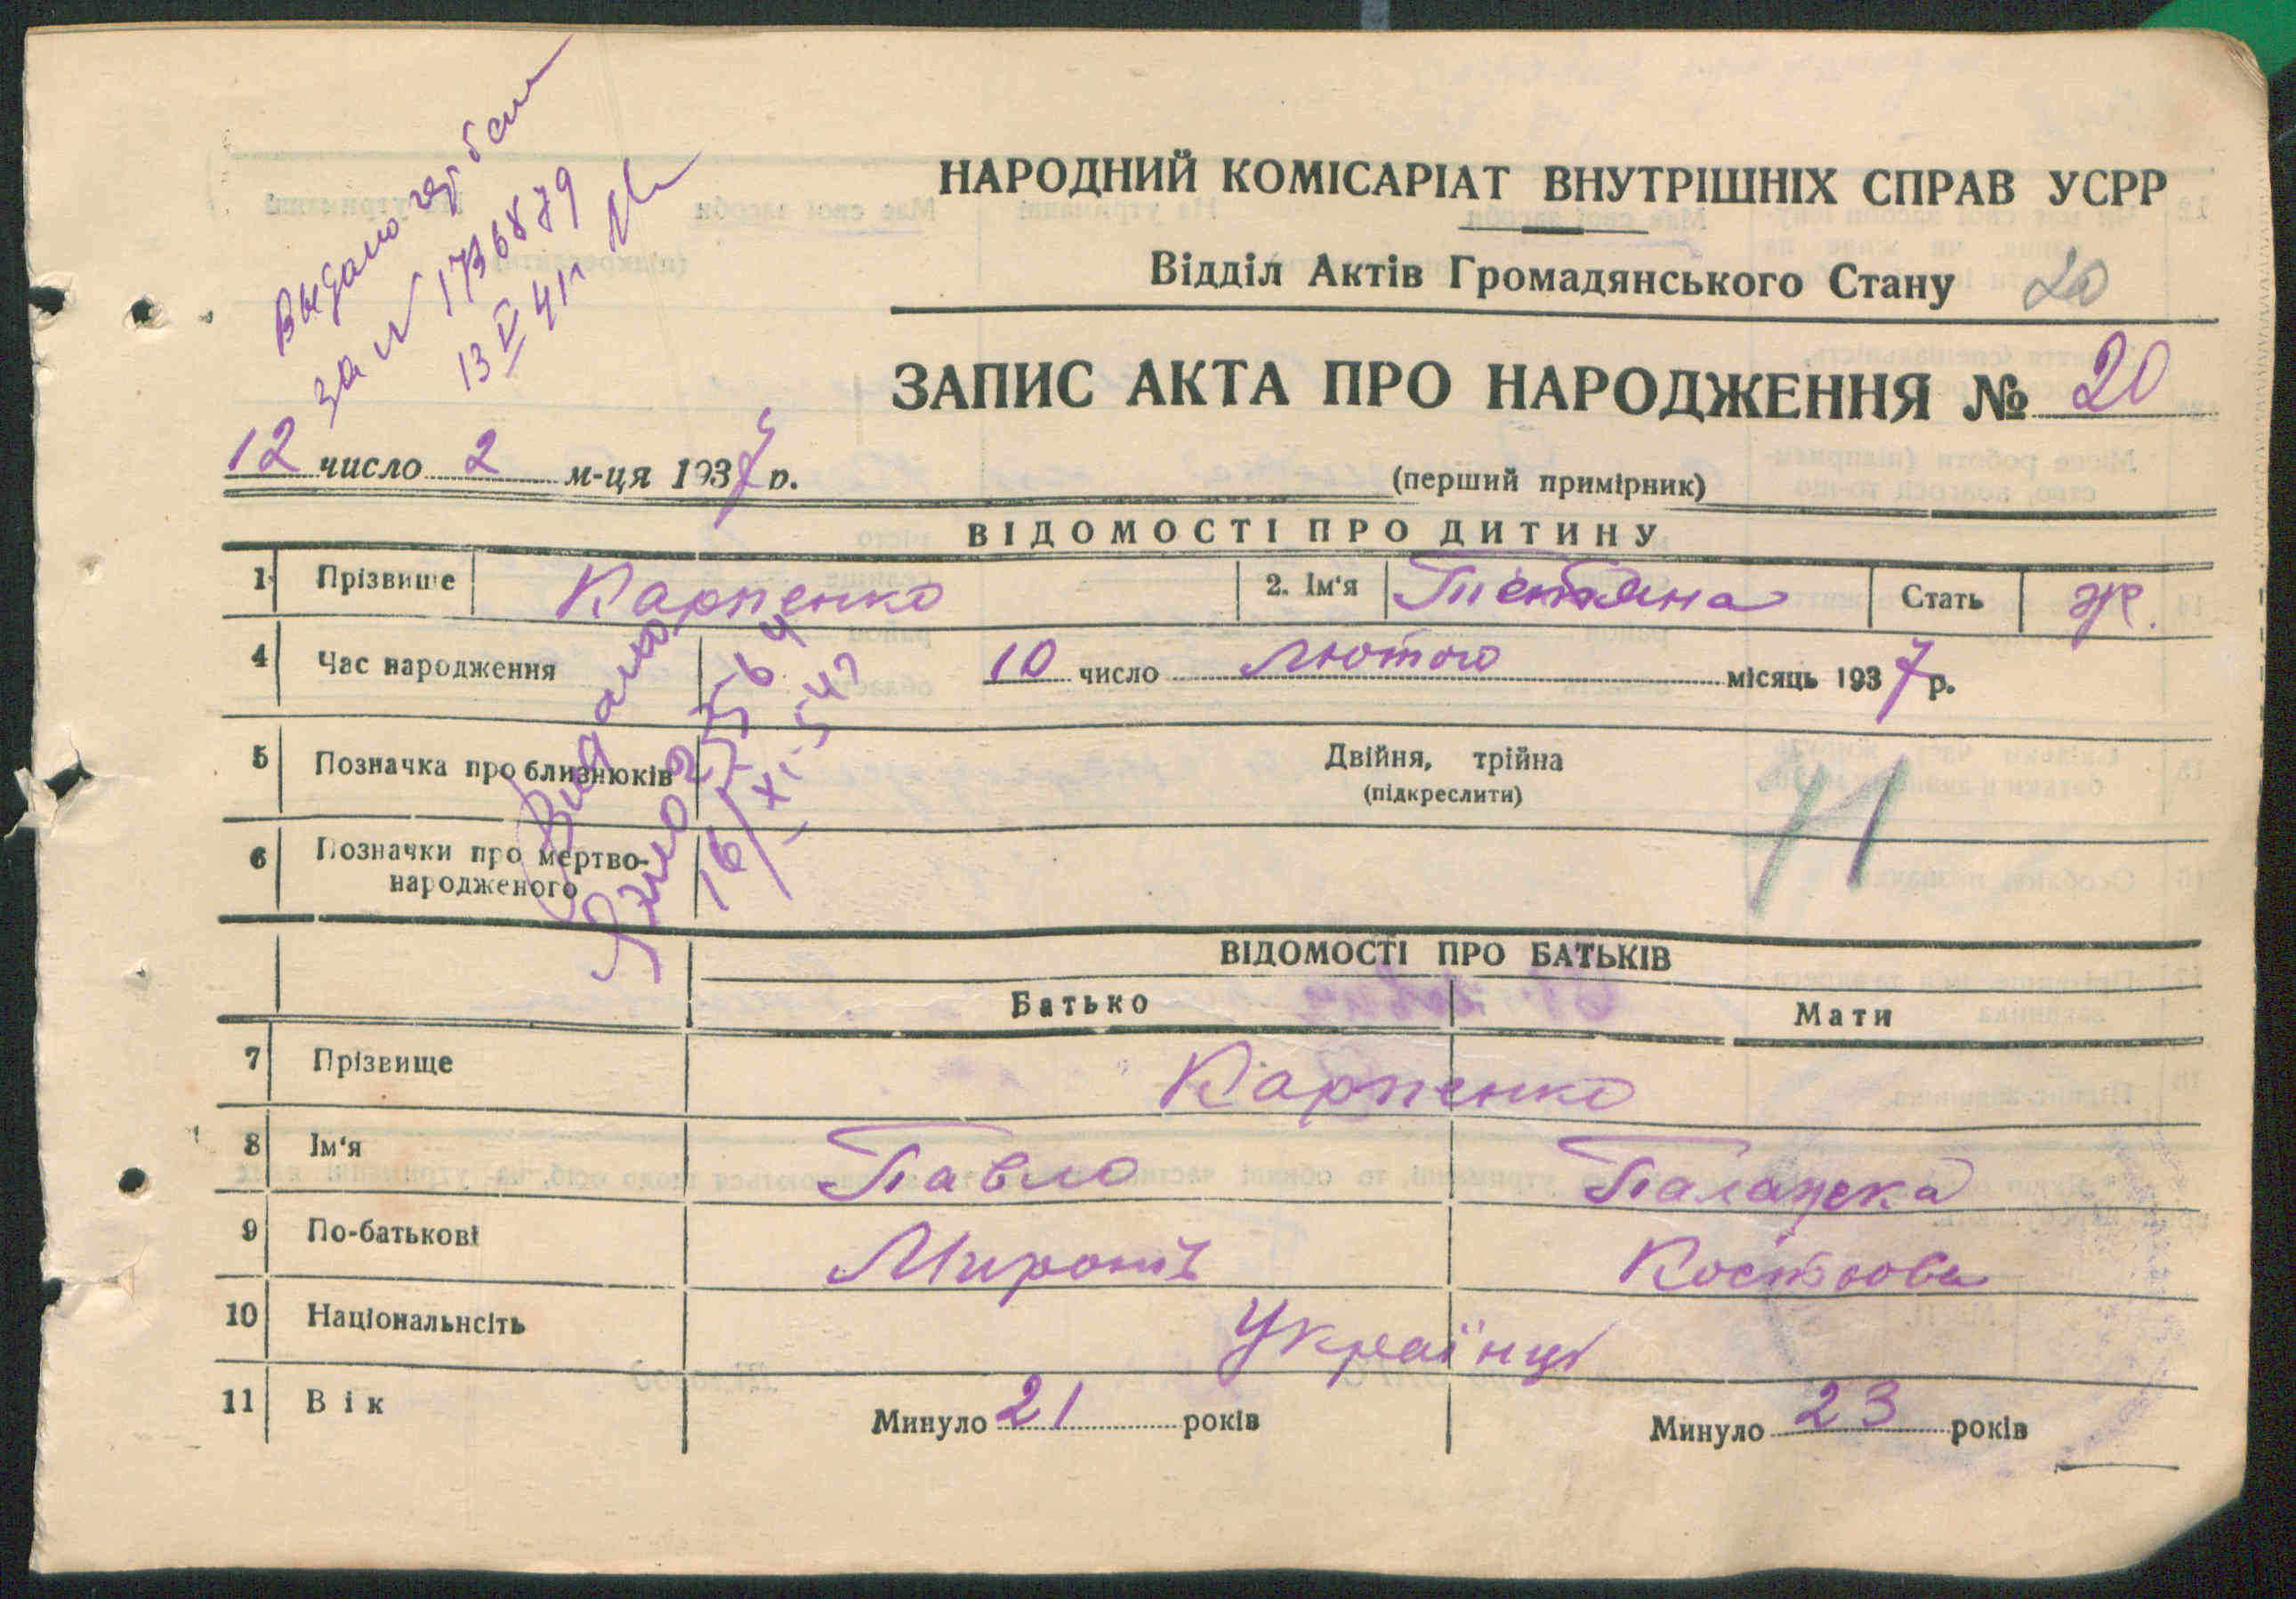 Выдано герб бел
за № 1736879
13 V 41г
НАРОДНИЙ КОМІСАРІАТ ВНУТРІШНІХ СПРАВ УСРР
Відділ Актів Громадянського Стану 20
ЗАПИС АКТА ПРО НАРОДЖЕННЯ № 20
12 число 2 м-ця 1937 р.
(перший примірник)
ВІДОМОСТІ ПРО ДИТИНУ
1 Прізвище Карпенко 2. Ім'я Тетяна Стать Ж.
4 Час народження 10 число Лютого місяць 1937 р.
5 Позначка про близнюків Двійня, трійна
(підкреслити)
6 Позначки про мертво-
народженого
Видано
16/XI-54
ВІДОМОСТІ ПРО БАТЬКІВ
Батько Мати
7 Прізвище Карпенко
8 Ім'я Павло Палажка
9 По-батькові Миронів Костьова
10 Національнсіть Українці
11 Вік Минуло 21 років Минуло 23 років